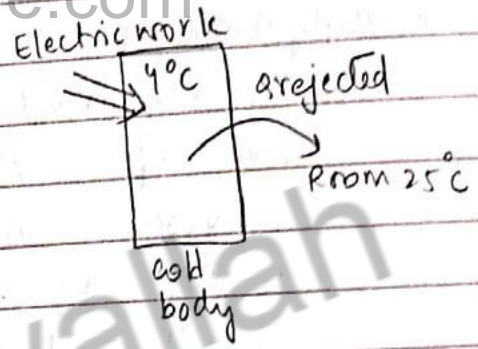 e.com
Electric work
4°C
Qrejected
Room 25°C
cold
body
wallah